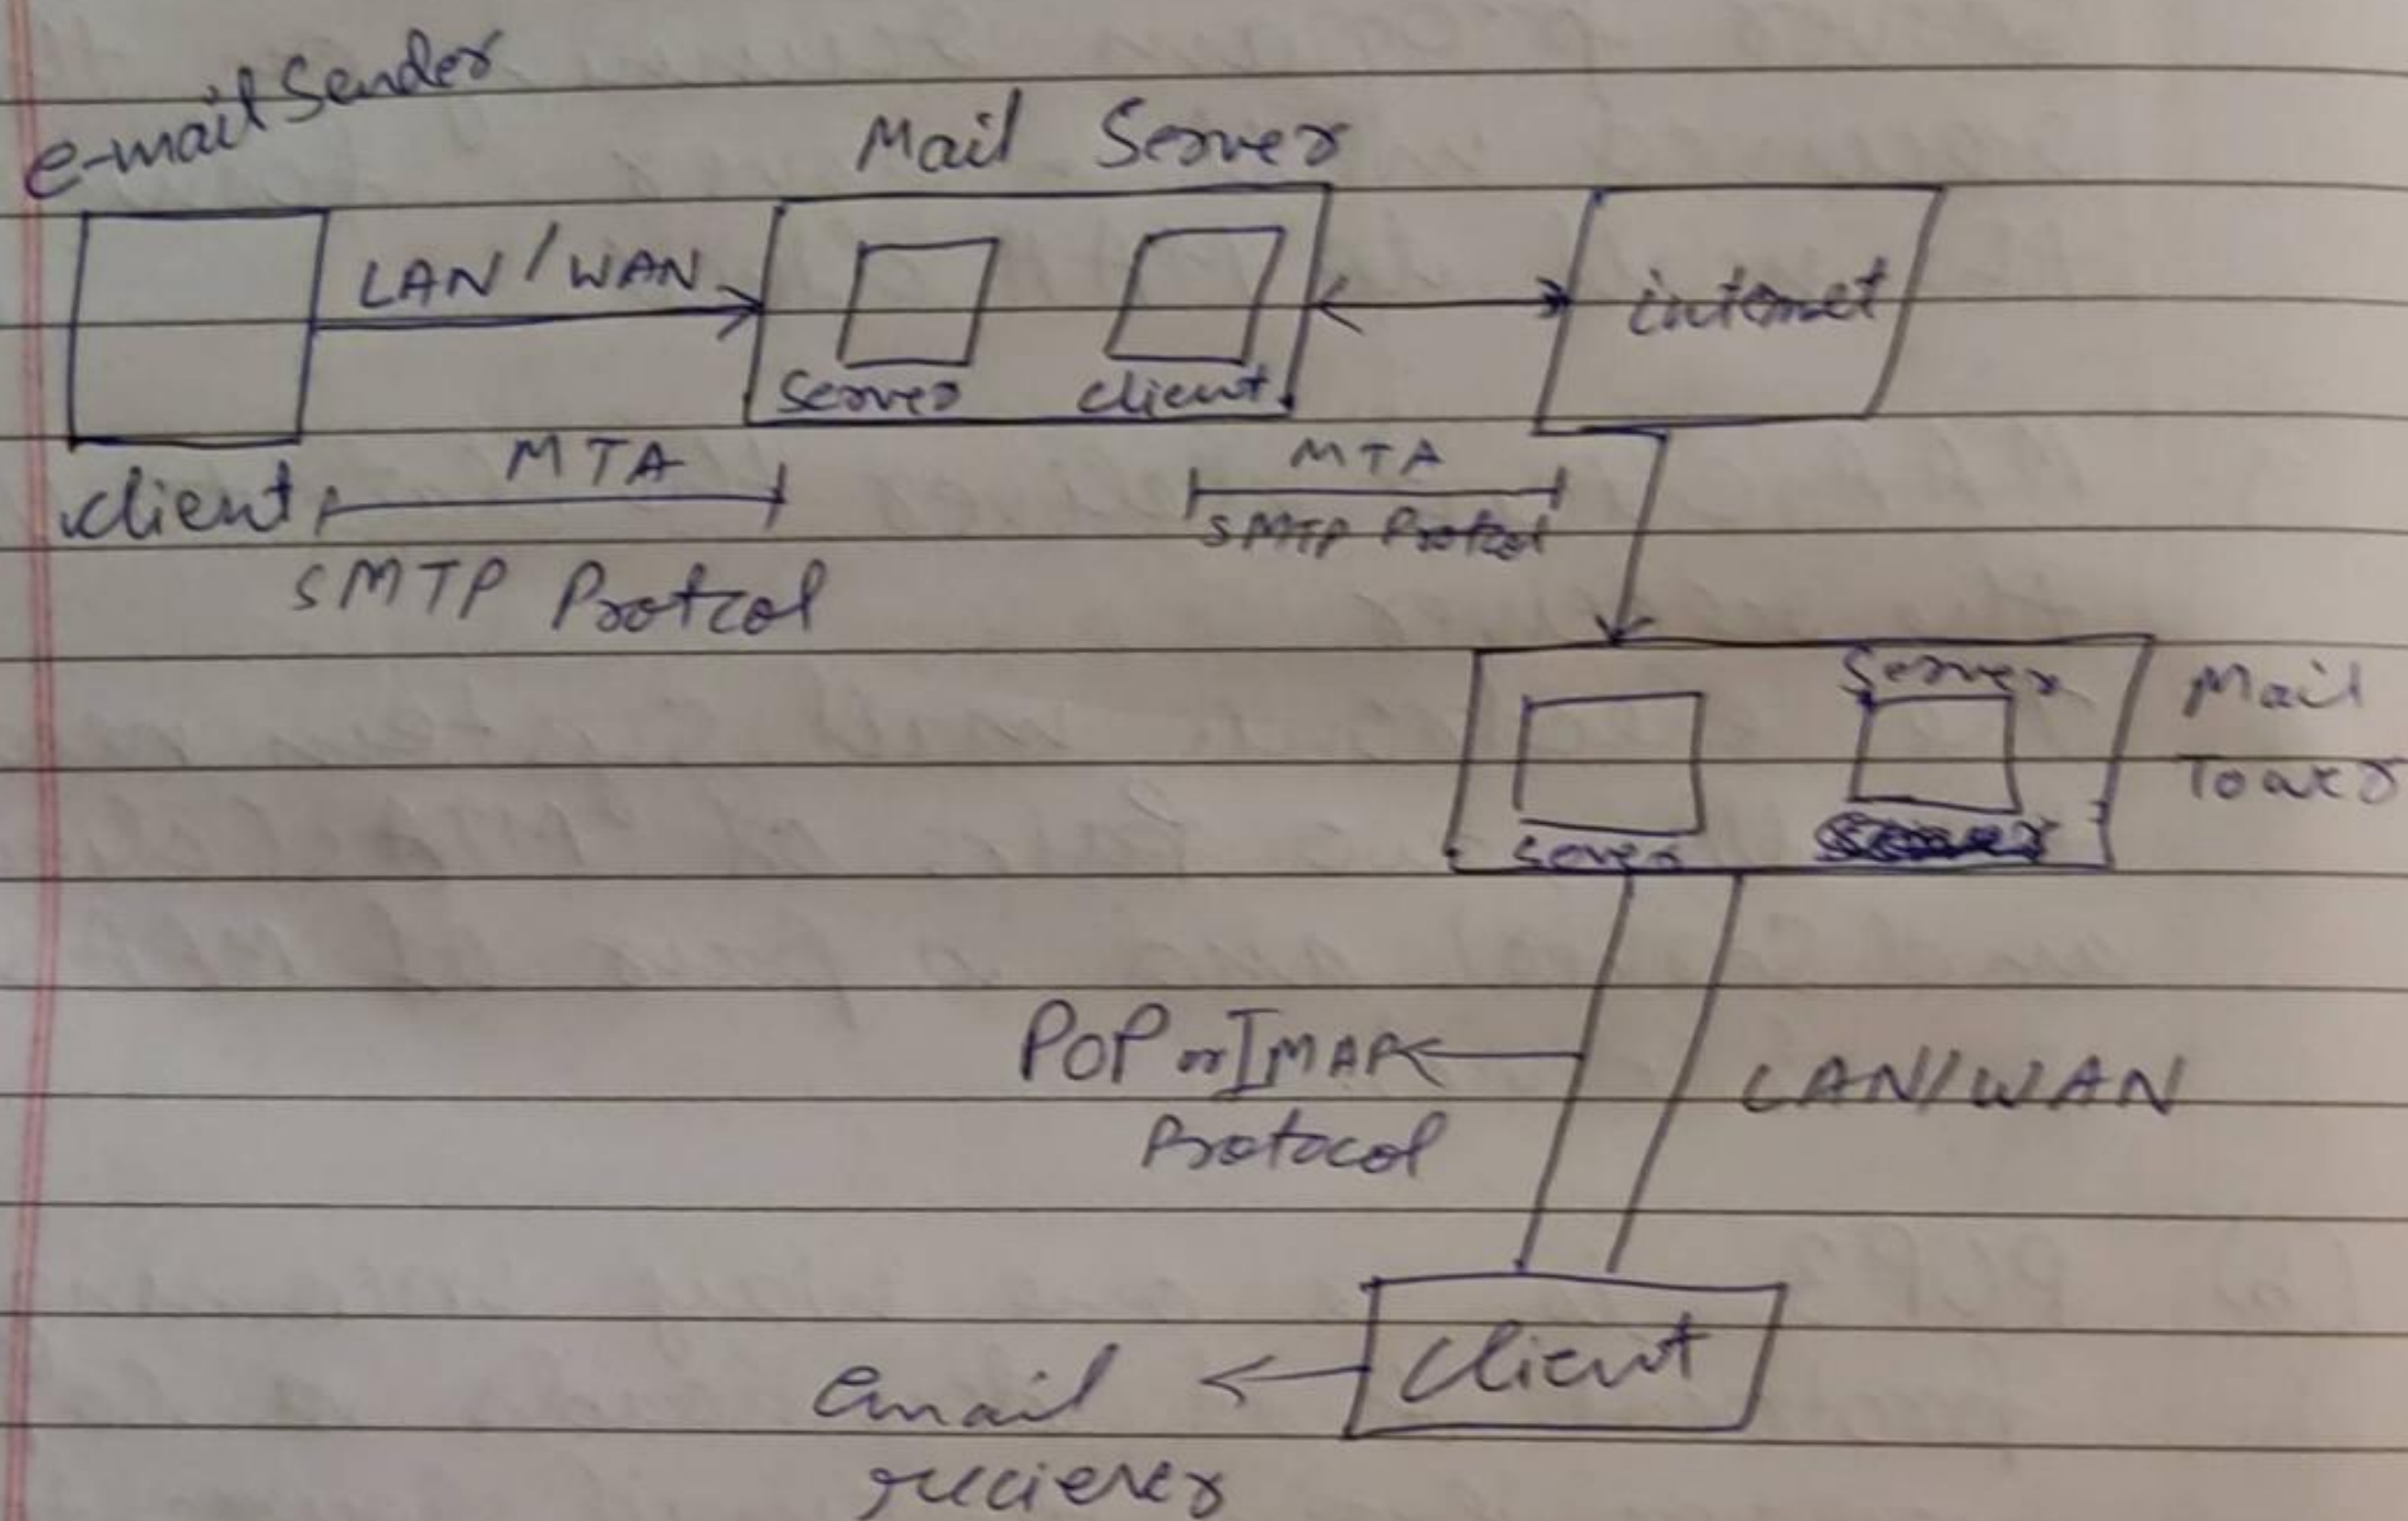 e-mail Sender
Mail Server
LAN / WAN
internet
Server client
client
MTA
SMTP Protcol
MTA
SMTP Protcol
Server
Mail
sever
POP or IMAP
Protocol
LAN/WAN
Client
email
reciever